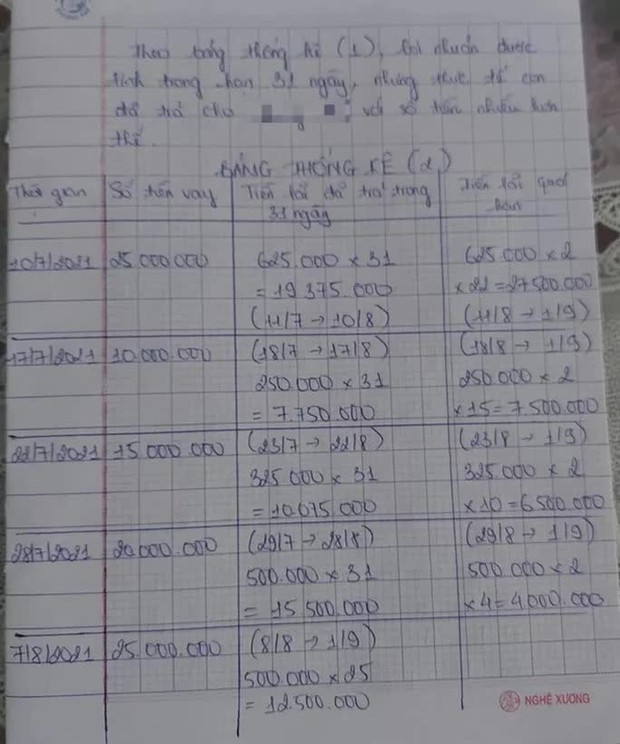 Theo bảng thống kê (1), lợi nhuận được
tính trong hạn 31 ngày, nhưng thực tế con
đã trả cho với số tiền nhiều hơn
thế.
BẢNG THỐNG KÊ (2)
Thời gian Số tiền vay Tiền lãi đã trả trong 31 ngày Tiền lãi quá hạn
10/7/2021 25.000.000 625.000 x 31 625.000 x 2
= 19.375.000 x 21 = 27.500.000
(11/7 → 10/8) (11/8 → 1/9)
17/7/2021 10.000.000 (18/7 → 17/8) (18/8 → 1/9)
250.000 x 31 250.000 x 2
= 7.750.000 x 15 = 7.500.000
22/7/2021 15.000.000 (23/7 → 22/8) (23/8 → 1/9)
325.000 x 31 325.000 x 2
= 10.075.000 x 10 = 6.500.000
28/7/2021 20.000.000 (29/7 → 28/8) (29/8 → 1/9)
500.000 x 31 500.000 x 2
= 15.500.000 x 4 = 4.000.000
7/8/2021 25.000.000 (8/8 → 1/9)
500.000 x 25
= 12.500.000
NGHỆ XƯƠNG